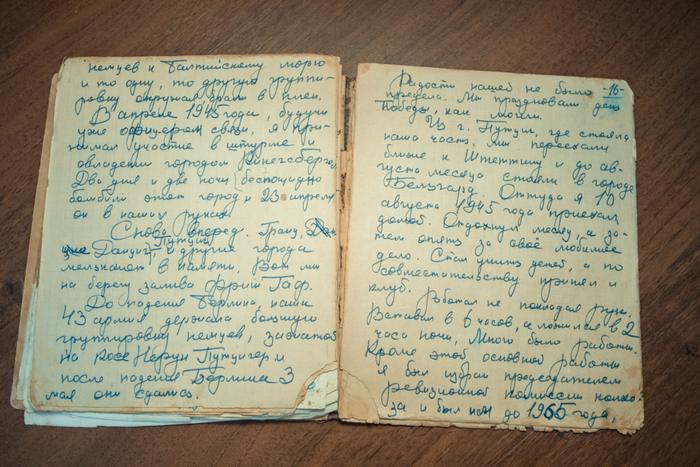 немцев к Балтийскому морю
и то одну, то другую группи-
ровку окружая брали в плен.
В апреле 1945 года, будучи
уже офицером связи, я при-
нимал участие в штурме и
овладении городом Кенигсберг.
Два дня и две ночи беспощадно
бомбили этот город и 23 апреля
он в наших руках.
Снова вперед. Гранц,
Данциг, Путциг и другие города
мелькают в памяти. Вот мы
на берегу залива Фриш Гаф.
До падения Берлина, наша
43 армия держала большую
группировку немцев, зажатой
на косе Нерун Путцигер и
после падения Берлина 3
мая они сдались.
-16-
Радости нашей не было
предела. Мы праздновали день
Победы, как могли.
Из г. Путциг, где стояла
наша часть, мы переехали
ближе к Штеттину и до ав-
густа месяца стояли в городе
Бельгард. Оттуда я 10
августа 1945 года приехал
домой. Отдохнул месяц, а за-
тем опять за своё любимое
дело. Стал учить детей, а по
совместительству принял и
клуб. Работал не покладая рук.
Вставал в 6 часов, а ложился в 2
часа ночи. Много было работы.
Кроме этой основной работы
я был избран председателем
ревизионной комиссии колхо-
за и был им до 1965 года,